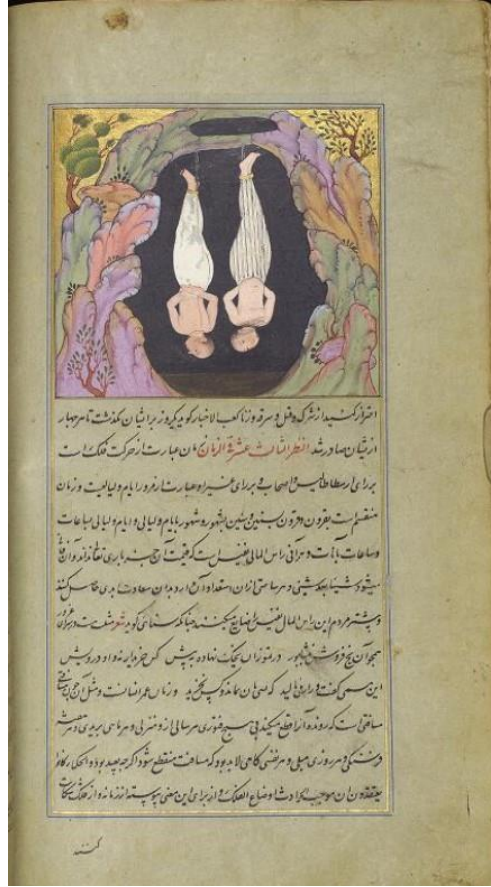 احتراز کنید از شرک و قتل و سرقه و زنا کعب الاخبار کوید یکروز برایشان نکذشت تا هر چهار
از یشان صادر شد النظر الثالث عشر فی الزمان زمان عبارت از حرکت فلک است
بر رای ارسطاطالیس و اصحاب و بر رای غیر او عبارت از مرور ایام و لیالیست و زمان
منقسم است بقرون و قرون بسنین و سنین بشهور و شهور بایام و لیالی و ایام و لیالی بساعات
و ساعات بآنات و هر آنی راس المالی نفیس است که قیمت آن جز باری تعالی نداند و آن
میشود شیئا بعد شیئی و هر ساعتی از ان استعداد آن دارد که بدان سعادت ابدی حاصل کنند
و بیشتر مردم این راس المال نفیس را ضایع میکنند چنانکه سنائی کوید شعر مثلت هست در
همچو آن یخ فروش نیشابور در تموز آن یخک نهاده به پیش کس خریدار نه و او درویش
این همی کفت و زار می نالید که بسی مان نماند و کس نخرید و زمان عمر انسانست و مثل آن چون
مسافتی است که رونده آنرا قطع میکند بی هیچ فتوری هر سالی از و منزلی و هر ماهی بریدی و هر
فرسنکی و هر روزی میلی و هر نفسی کامی لابد بود که مسافت منقطع شود اکرچه بعید بود و
معتقد و زمان موجب حوادث اوضاع الفلک و از برای این معنی پیوسته از زمانه و از فلک شکایت
کنند